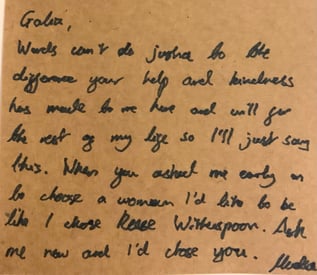 Words can't do justice to the
difference your help and kindness
has made to me here and will for
the rest of my life so I'll just say
this. When you asked me early on
to choose a woman I'd like to be
like I chose Reese Witherspoon. Ask
me now and I'd chose you.